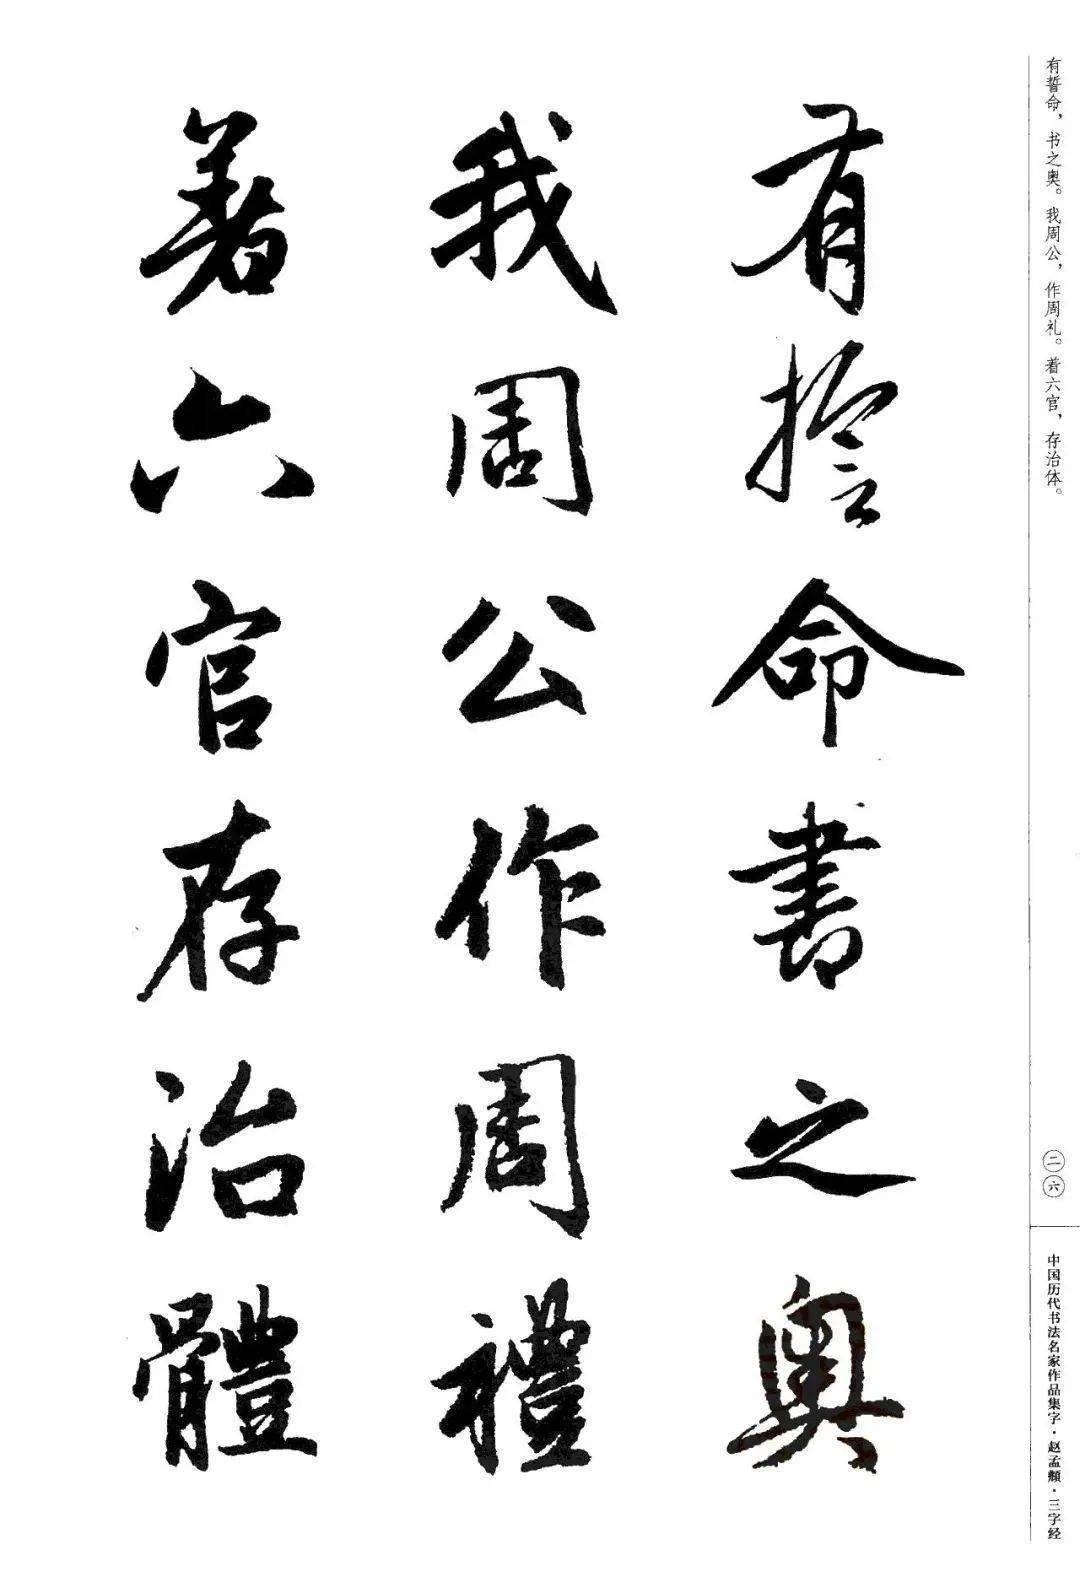 有誓命，书之奥。我周公，作周礼。着六官，存治体。
有誓命書之奥
我周公作周禮
著六官存治體
二六
中国历代书法名家作品集字·赵孟頫·三字经